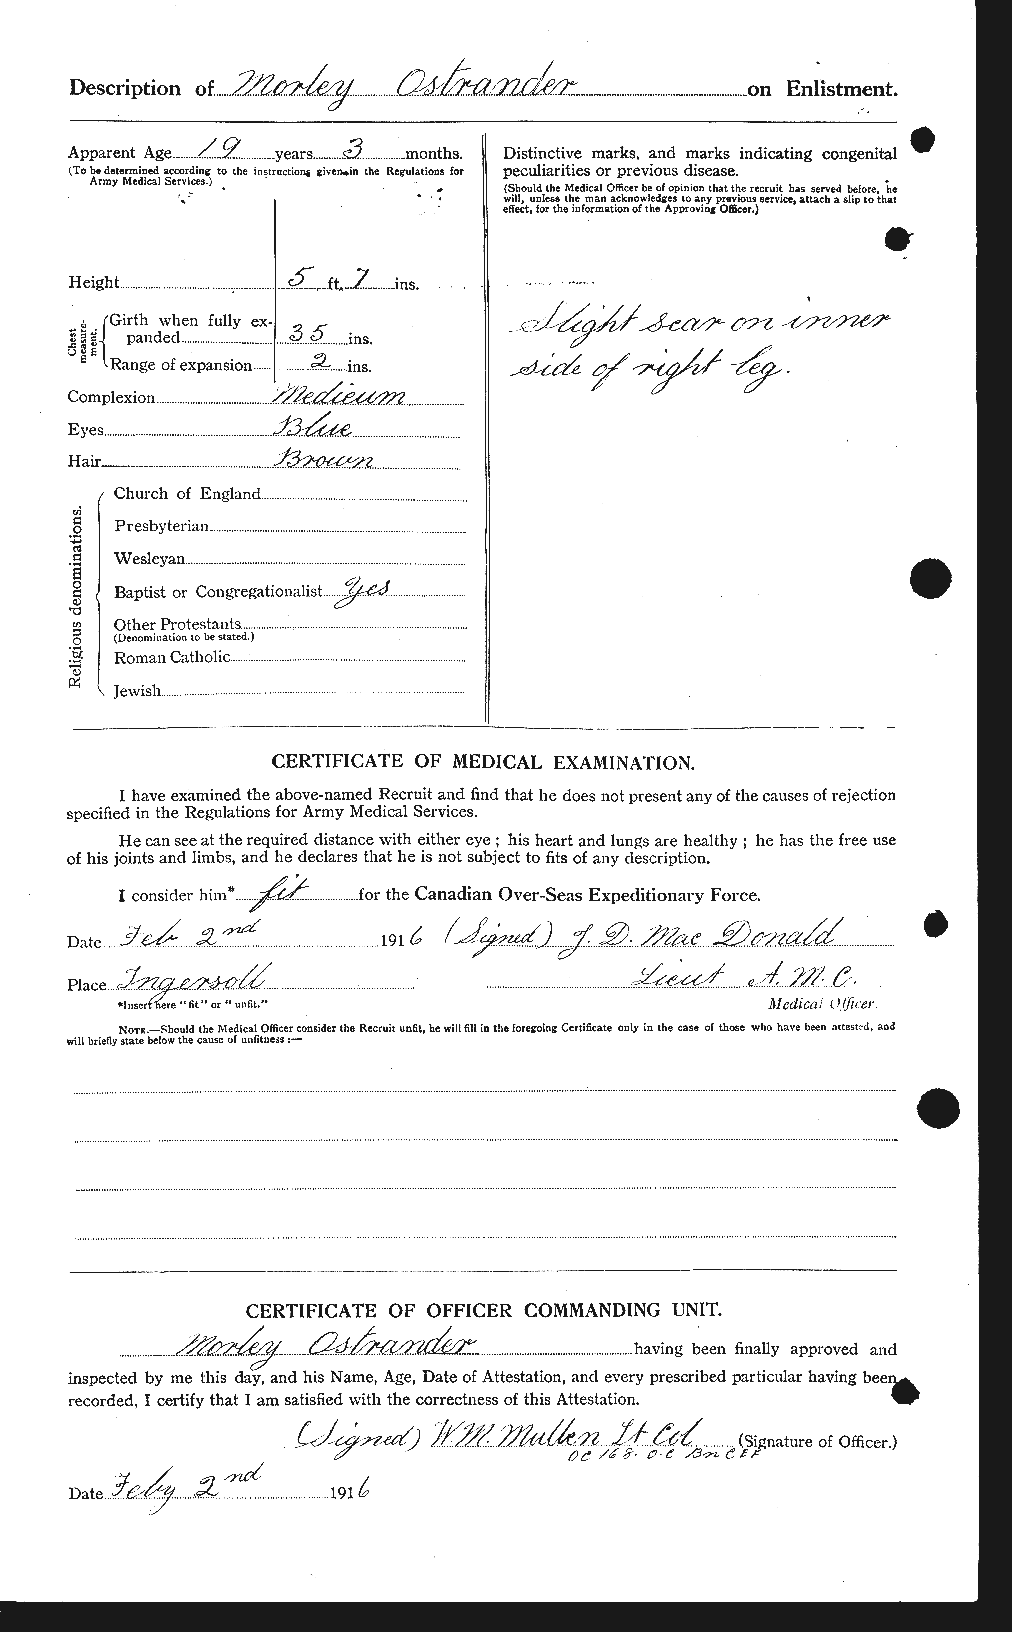 Description of Morley Ostrander on Enlistment.
Apparent Age 19 years 3 months.
(To be determined according to the instructions given in the Regulations for
Army Medical Services.)
Height 5 ft. 7 ins.
Chest measure-ment.
Girth when fully ex-
panded 35 ins.
Range of expansion 2 ins.
Complexion Medieum
Eyes Blue
Hair Brown
Religious denominations.
Church of England
Presbyterian
Wesleyan
Baptist or Congregationalist Yes
Other Protestants
(Denomination to be stated.)
Roman Catholic
Jewish
Distinctive marks, and marks indicating congenital
peculiarities or previous disease.
(Should the Medical Officer be of opinion that the recruit has served before, he
will, unless the man acknowledges to any previous service, attach a slip to that
effect, for the information of the Approving Officer.)
Slight scar on inner
side of right leg.
CERTIFICATE OF MEDICAL EXAMINATION.
I have examined the above-named Recruit and find that he does not present any of the causes of rejection
specified in the Regulations for Army Medical Services.
He can see at the required distance with either eye; his heart and lungs are healthy; he has the free use
of his joints and limbs, and he declares that he is not subject to fits of any description.
I consider him* fit for the Canadian Over-Seas Expeditionary Force.
Date Feb 2nd 1916 (Signed) J. D. Mac Donald
Place Ingersoll Lieut A. M. C.
*Insert here "fit" or "unfit." Medical Officer.
NOTE.—Should the Medical Officer consider the Recruit unfit, he will fill in the foregoing Certificate only in the case of those who have been attested, and
will briefly state below the cause of unfitness:—
CERTIFICATE OF OFFICER COMMANDING UNIT.
Morley Ostrander having been finally approved and
inspected by me this day, and his Name, Age, Date of Attestation, and every prescribed particular having been
recorded, I certify that I am satisfied with the correctness of this Attestation.
(Signed) W M. Mullen Lt Col (Signature of Officer.)
OC 168. O.C Bn CEF
Date Feby 2nd 1916